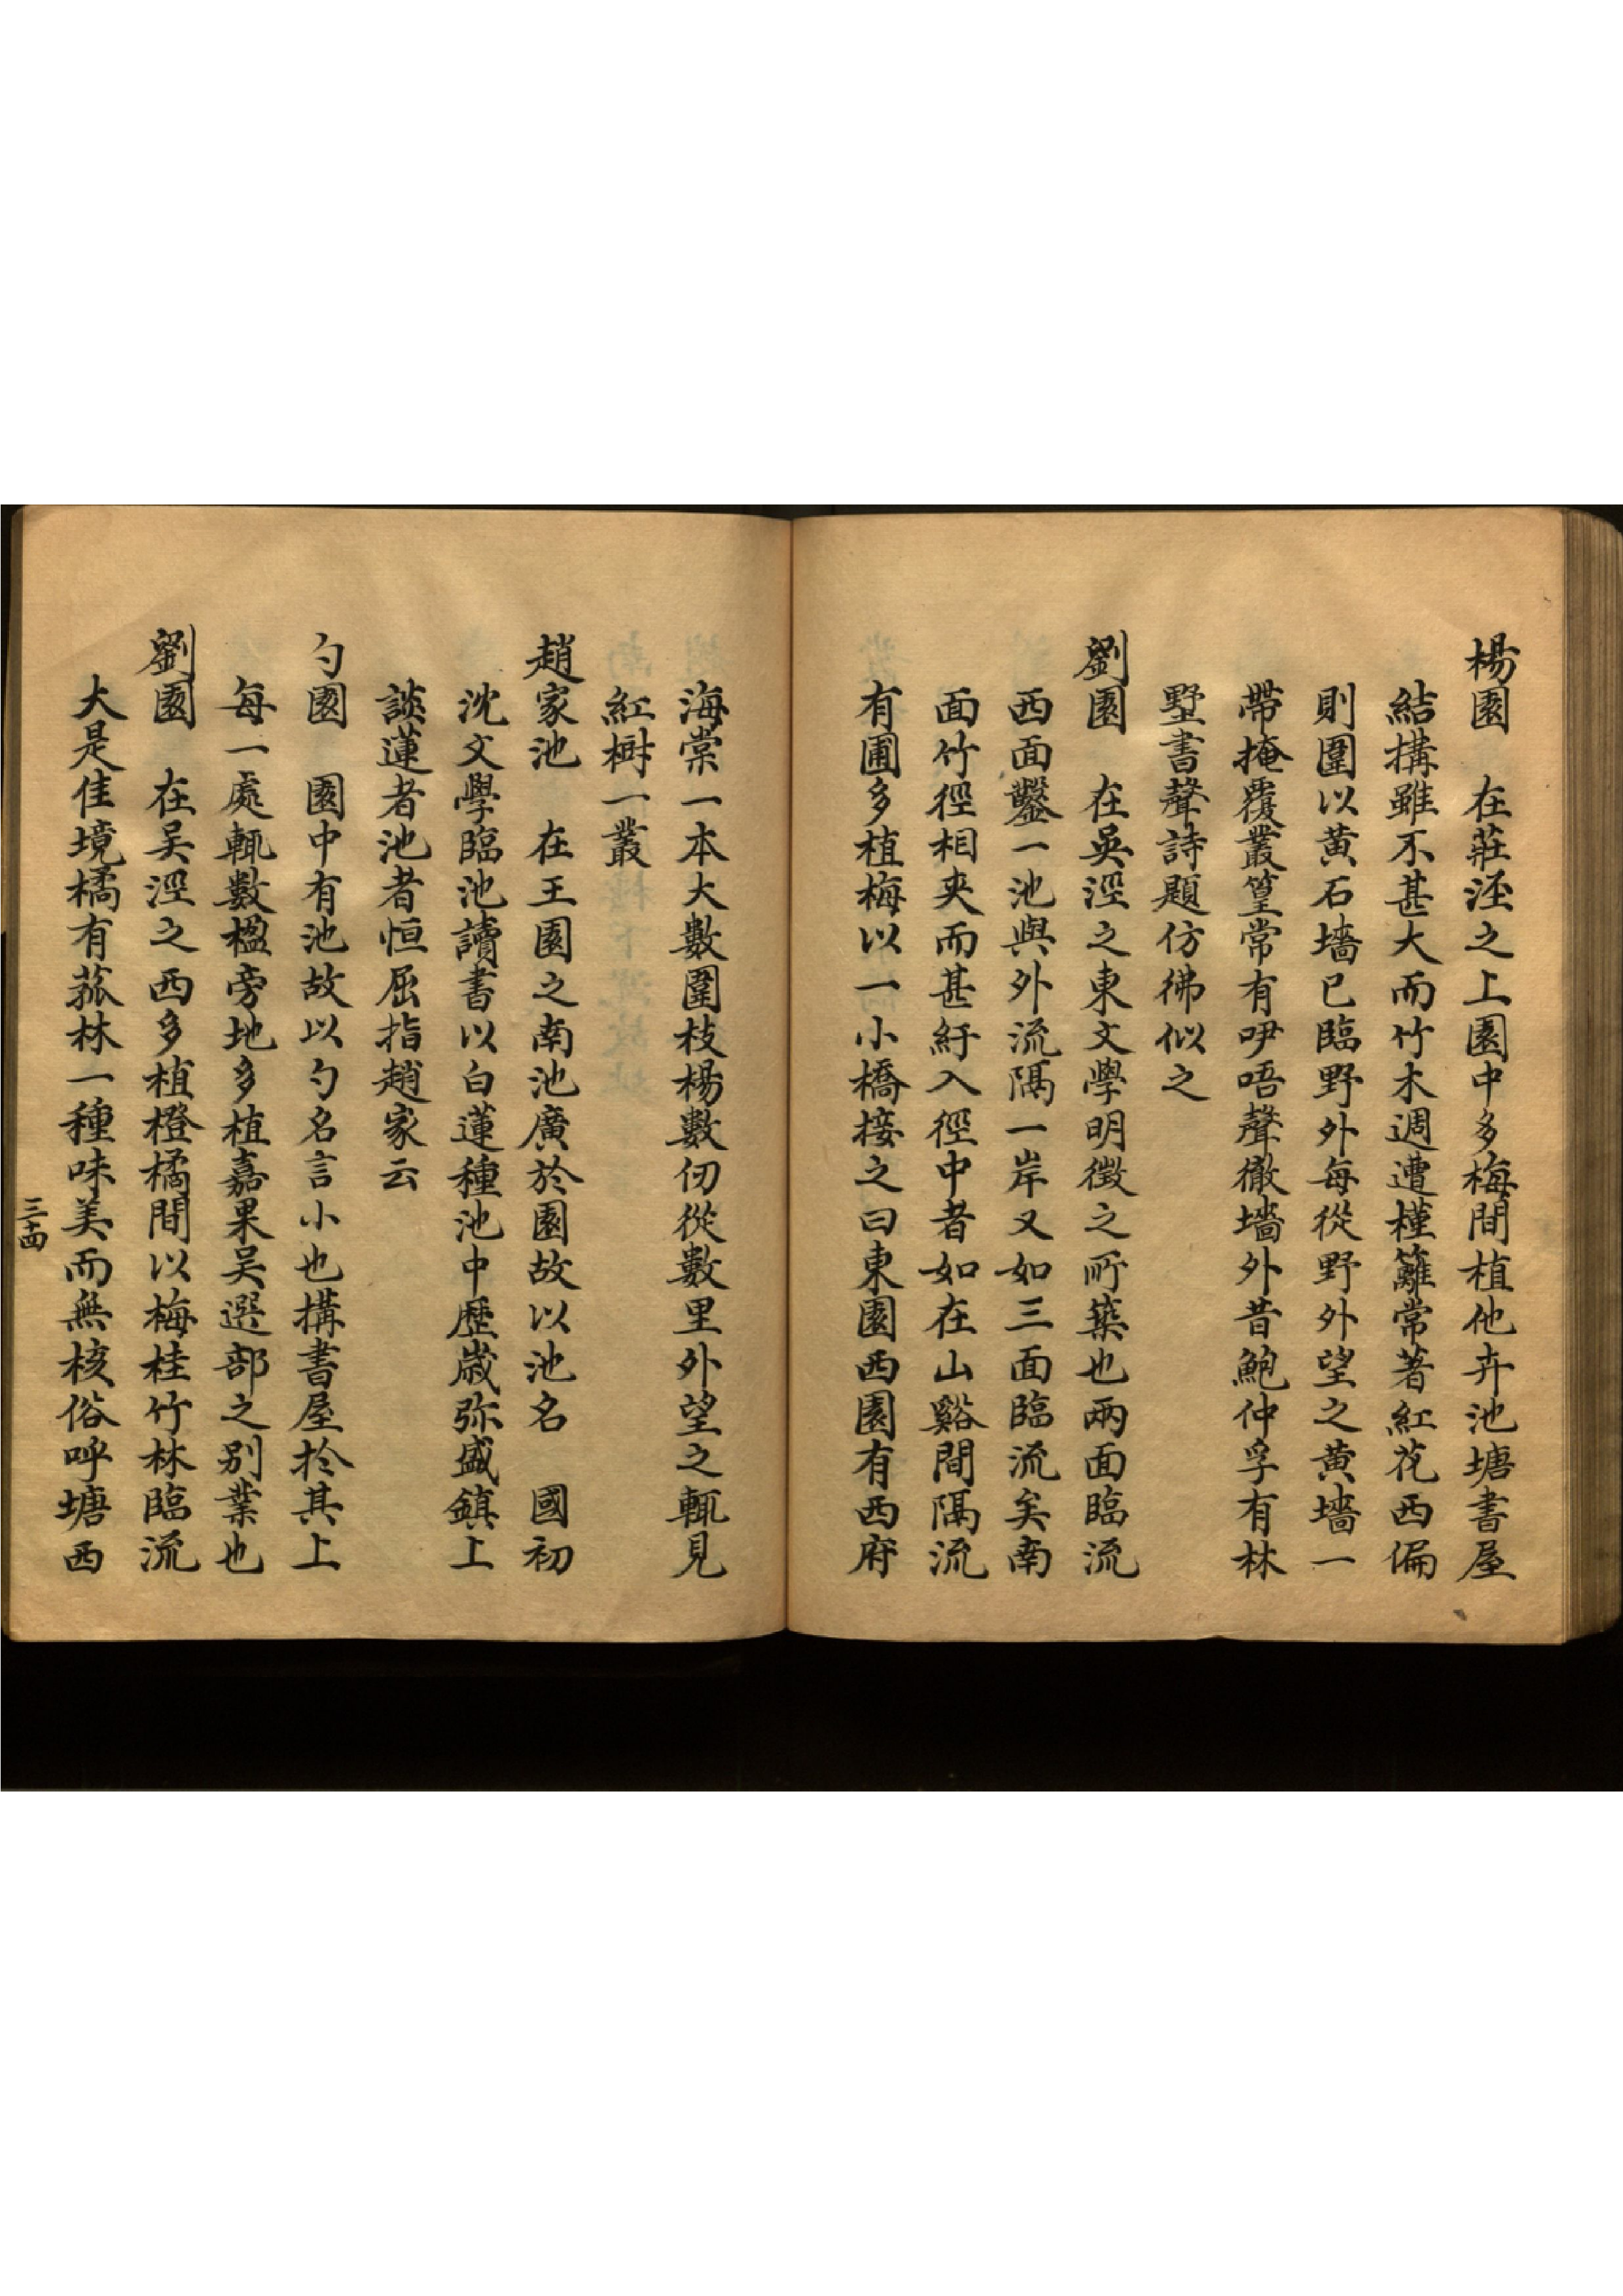 楊園　在莊涇之上園中多梅間植他卉池塘書屋
結搆雖不甚大而竹木週遭槿籬常著紅花西偏
則圍以黄石墻已臨野外每從野外望之黄墻一
帶掩覆叢篁常有咿唔聲徹墻外昔鮑仲孚有林
墅書聲詩題仿彿似之
劉園　在吳涇之東文學明徴之所築也兩面臨流
西面鑿一池與外流隔一岸又如三面臨流矣南
面竹徑相夾而甚紆入徑中者如在山谿間隔流
有圃多植梅以一小橋接之曰東園西園有西府
海棠一本大數圍枝楊數仞從數里外望之輒見
紅樹一叢
趙家池　在王園之南池廣於園故以池名　國初
沈文學臨池讀書以白蓮種池中歷歲弥盛鎮上
談蓮者池者恒屈指趙家云
勺園　園中有池故以勺名言小也搆書屋於其上
每一處輒數楹旁地多植嘉果吴選部之别業也
劉園　在吴涇之西多植橙橘間以梅桂竹林臨流
大是佳境橘有菰林一種味美而無核俗呼塘西
三十四